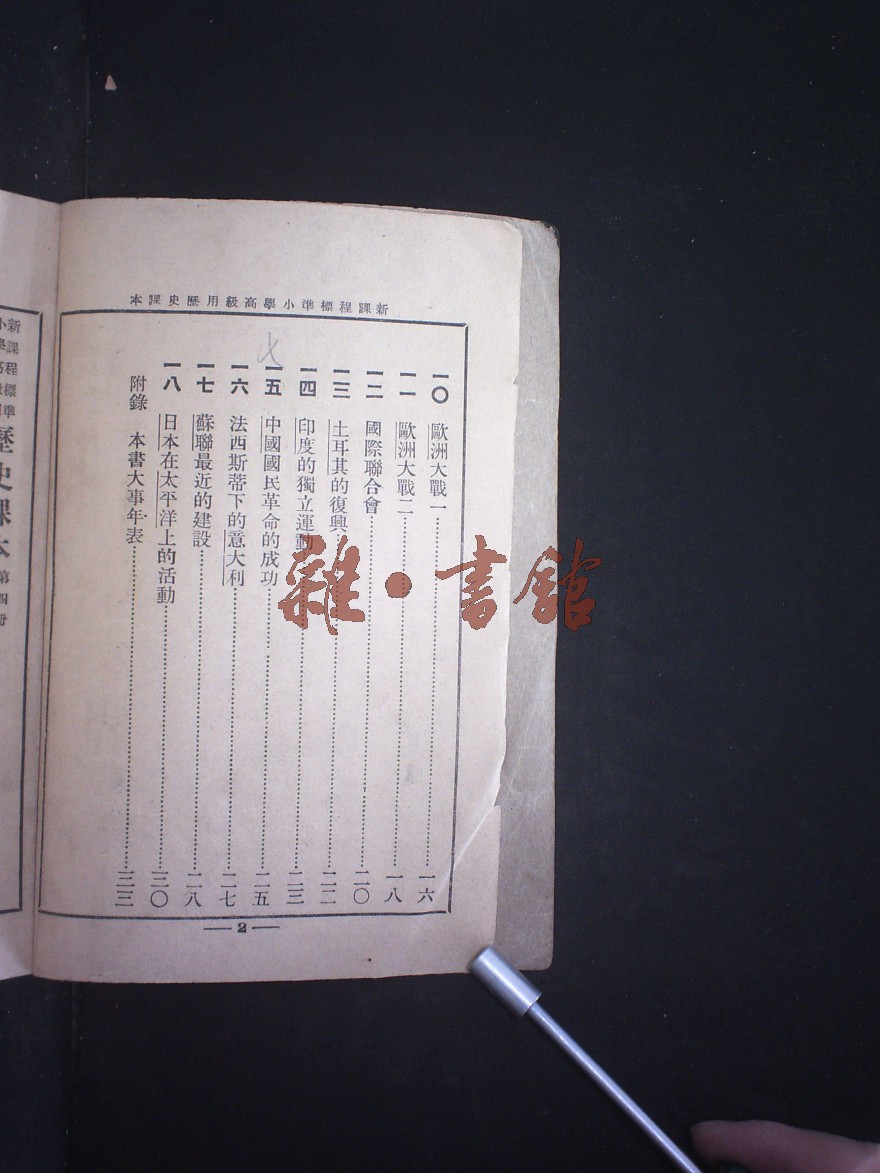 新課程標準小學高級用歷史課本
一〇 歐洲大戰一……一六
一一 歐洲大戰二……一八
一二 國際聯合會……二〇
一三 土耳其的復興……二二
一四 印度的獨立運動……二三
一五 中國國民革命的成功……二五
一六 法西斯蒂下的意大利……二七
一七 蘇聯最近的建設……二八
一八 日本在太平洋上的活動……三〇
附錄 本書大事年表……三三
2
新課程標準
歷史課本 第四冊
雜·書館